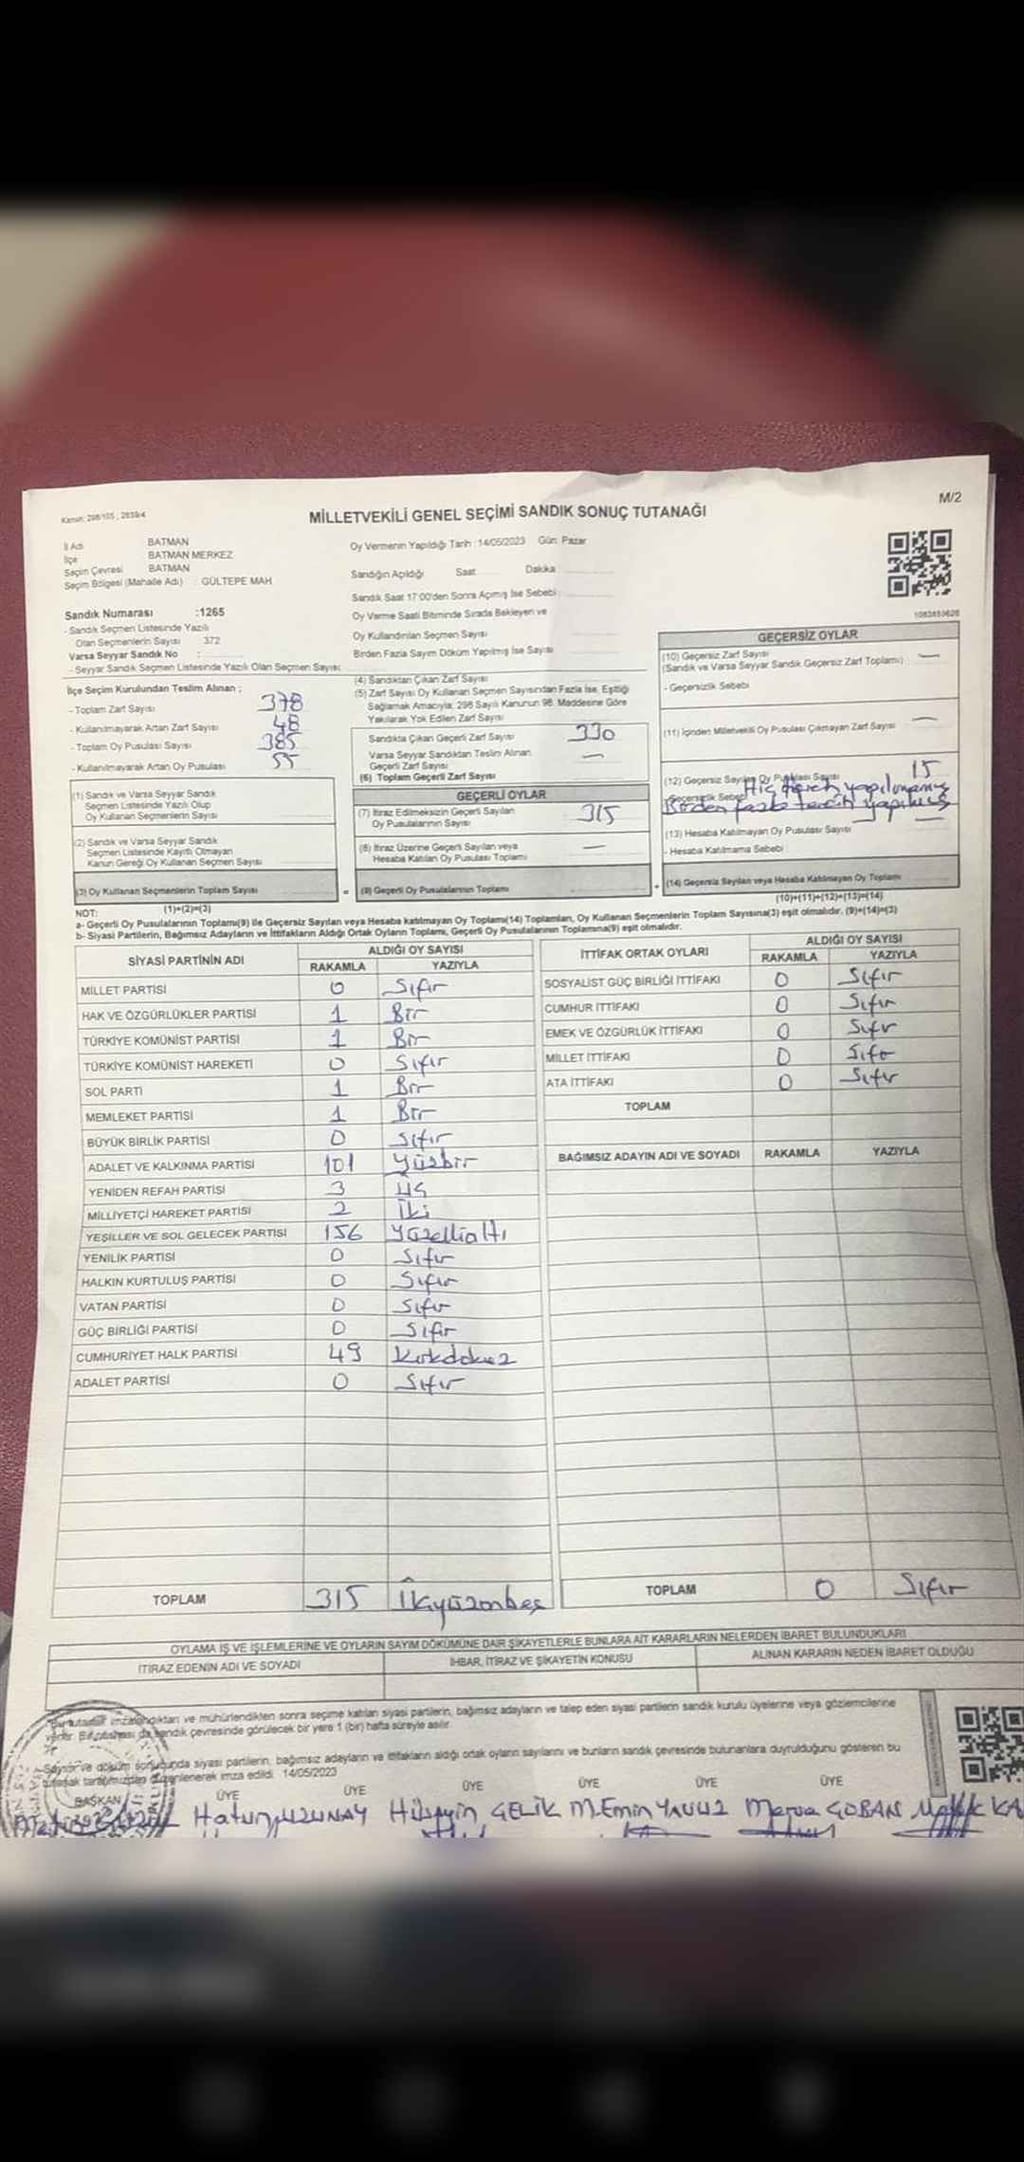 M/2
Kanun: 298/105 ; 2839/4
MİLLETVEKİLİ GENEL SEÇİMİ SANDIK SONUÇ TUTANAĞI
İl Adı BATMAN
İlçe BATMAN MERKEZ
Seçim Çevresi BATMAN
Seçim Bölgesi (Mahalle Adı) GÜLTEPE MAH
Sandık Numarası :1265
- Sandık Seçmen Listesinde Yazılı
Olan Seçmenlerin Sayısı 372
Varsa Seyyar Sandık No :
- Seyyar Sandık Seçmen Listesinde Yazılı Olan Seçmen Sayısı:
Oy Vermenin Yapıldığı Tarih :14/05/2023 Gün: Pazar
Sandığın Açıldığı Saat Dakika
Sandık Saat 17:00'den Sonra Açılmış İse Sebebi
Oy Verme Saati Bitiminde Sırada Bekleyen ve
Oy Kullandırılan Seçmen Sayısı
Birden Fazla Sayım Döküm Yapılmış İse Sayısı
İlçe Seçim Kurulundan Teslim Alınan ;
- Toplam Zarf Sayısı 378
- Kullanılmayarak Artan Zarf Sayısı 48
- Toplam Oy Pusulası Sayısı 385
- Kullanılmayarak Artan Oy Pusulası 55
(1) Sandık ve Varsa Seyyar Sandık
Seçmen Listesinde Yazılı Olup
Oy Kullanan Seçmenlerin Sayısı
(2) Sandık ve Varsa Seyyar Sandık
Seçmen Listesinde Kayıtlı Olmayan
Kanun Gereği Oy Kullanan Seçmen Sayısı
(3) Oy Kullanan Seçmenlerin Toplam Sayısı
(1)+(2)=(3)
(4) Sandıktan Çıkan Zarf Sayısı
(5) Zarf Sayısı Oy Kullanan Seçmen Sayısından Fazla İse, Eşitliği
Sağlamak Amacıyla; 298 Sayılı Kanunun 98. Maddesine Göre
Yakılarak Yok Edilen Zarf Sayısı
Sandıkta Çıkan Geçerli Zarf Sayısı 330
Varsa Seyyar Sandıktan Teslim Alınan
Geçerli Zarf Sayısı —
(6) Toplam Geçerli Zarf Sayısı
GEÇERLİ OYLAR
(7) İtiraz Edilmeksizin Geçerli Sayılan
Oy Pusulalarının Sayısı 315
(8) İtiraz Üzerine Geçerli Sayılan veya
Hesaba Katılan Oy Pusulası Toplamı —
= (9) Geçerli Oy Pusulalarının Toplamı
1083850628
GEÇERSİZ OYLAR
(10) Geçersiz Zarf Sayısı —
(Sandık ve Varsa Seyyar Sandık Geçersiz Zarf Toplamı)
- Geçersizlik Sebebi
(11) İçinden Milletvekili Oy Pusulası Çıkmayan Zarf Sayısı —
(12) Geçersiz Sayılan Oy Pusulası Sayısı 15
- Geçersizlik Sebebi Hiç tercih yapılmamış
Birden fazla tercih yapılmış
(13) Hesaba Katılmayan Oy Pusulası Sayısı —
- Hesaba Katılmama Sebebi
+ (14) Geçersiz Sayılan veya Hesaba Katılmayan Oy Toplamı
(10)+(11)+(12)+(13)=(14)
NOT:
a- Geçerli Oy Pusulalarının Toplamı(9) ile Geçersiz Sayılan veya Hesaba katılmayan Oy Toplamı(14) Toplamları, Oy Kullanan Seçmenlerin Toplam Sayısına(3) eşit olmalıdır. (9)+(14)=(3)
b- Siyasi Partilerin, Bağımsız Adayların ve İttifakların Aldığı Ortak Oyların Toplamı, Geçerli Oy Pusulalarının Toplamına(9) eşit olmalıdır.
SİYASİ PARTİNİN ADI ALDIĞI OY SAYISI
RAKAMLA YAZIYLA
MİLLET PARTİSİ 0 Sıfır
HAK VE ÖZGÜRLÜKLER PARTİSİ 1 Bir
TÜRKİYE KOMÜNİST PARTİSİ 1 Bir
TÜRKİYE KOMÜNİST HAREKETİ 0 Sıfır
SOL PARTİ 1 Bir
MEMLEKET PARTİSİ 1 Bir
BÜYÜK BİRLİK PARTİSİ 0 Sıfır
ADALET VE KALKINMA PARTİSİ 101 Yüzbir
YENİDEN REFAH PARTİSİ 3 Üç
MİLLİYETÇİ HAREKET PARTİSİ 2 İki
YEŞİLLER VE SOL GELECEK PARTİSİ 156 Yüzellialtı
YENİLİK PARTİSİ 0 Sıfır
HALKIN KURTULUŞ PARTİSİ 0 Sıfır
VATAN PARTİSİ 0 Sıfır
GÜÇ BİRLİĞİ PARTİSİ 0 Sıfır
CUMHURİYET HALK PARTİSİ 49 Kırkdokuz
ADALET PARTİSİ 0 Sıfır
TOPLAM 315 İkiyüzonbeş
İTTİFAK ORTAK OYLARI ALDIĞI OY SAYISI
RAKAMLA YAZIYLA
SOSYALİST GÜÇ BİRLİĞİ İTTİFAKI 0 Sıfır
CUMHUR İTTİFAKI 0 Sıfır
EMEK VE ÖZGÜRLÜK İTTİFAKI 0 Sıfır
MİLLET İTTİFAKI 0 Sıfır
ATA İTTİFAKI 0 Sıfır
TOPLAM
BAĞIMSIZ ADAYIN ADI VE SOYADI RAKAMLA YAZIYLA
TOPLAM 0 Sıfır
OYLAMA İŞ VE İŞLEMLERİNE VE OYLARIN SAYIM DÖKÜMÜNE DAİR ŞİKAYETLERLE BUNLARA AİT KARARLARIN NELERDEN İBARET BULUNDUKLARI
İTİRAZ EDENİN ADI VE SOYADI İHBAR, İTİRAZ VE ŞİKAYETİN KONUSU ALINAN KARARIN NEDEN İBARET OLDUĞU
imzalandıktan ve mühürlendikten sonra seçime katılan siyasi partilerin, bağımsız adayların ve talep eden siyasi partilerin sandık kurulu üyelerine veya gözlemcilerine
sandık çevresinde görülecek bir yere 1 (bir) hafta süreyle asılır.
Sayım ve döküm sonucunda siyasi partilerin, bağımsız adayların ve ittifakların aldığı ortak oyların sayılarını ve bunların sandık çevresinde bulunanlara duyrulduğunu gösteren bu
tutanak tarafımızdan düzenlenerek imza edildi. 14/05/2023
BAŞKAN ÜYE ÜYE ÜYE ÜYE ÜYE
Hatun UZUNAY Hüseyin ÇELİK M.Emin YAVUZ Merva ÇOBAN